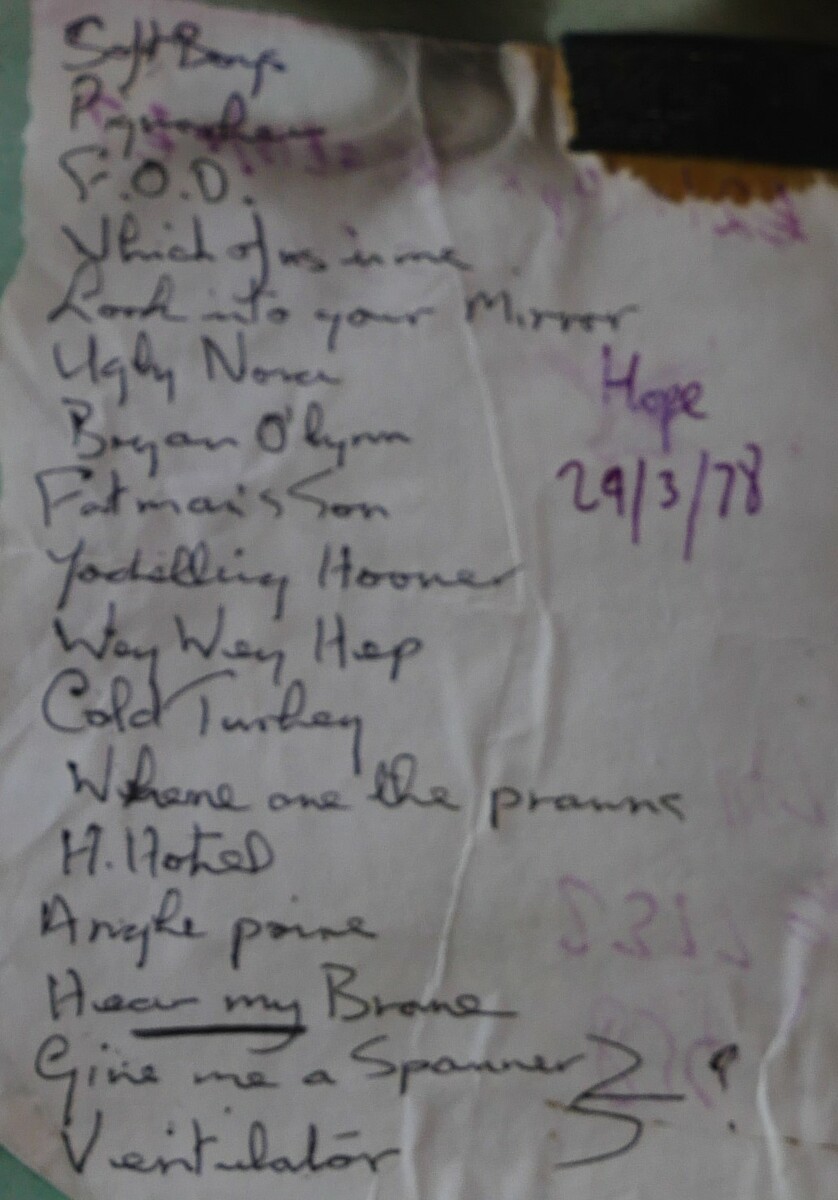 Soft Boys
Pigworker
F.O.D.
Which of us is me
Look into your Mirror
Ugly Nora
Bryan O'lynn
Fatman's Son
Hope
29/3/78
Yodelling Hoover
Wey Wey Hep
Cold Turkey
Where are the prawns
H. Hotel
Anglepoise
Hear my Brane
Give me a Spanner
?
Ventilator